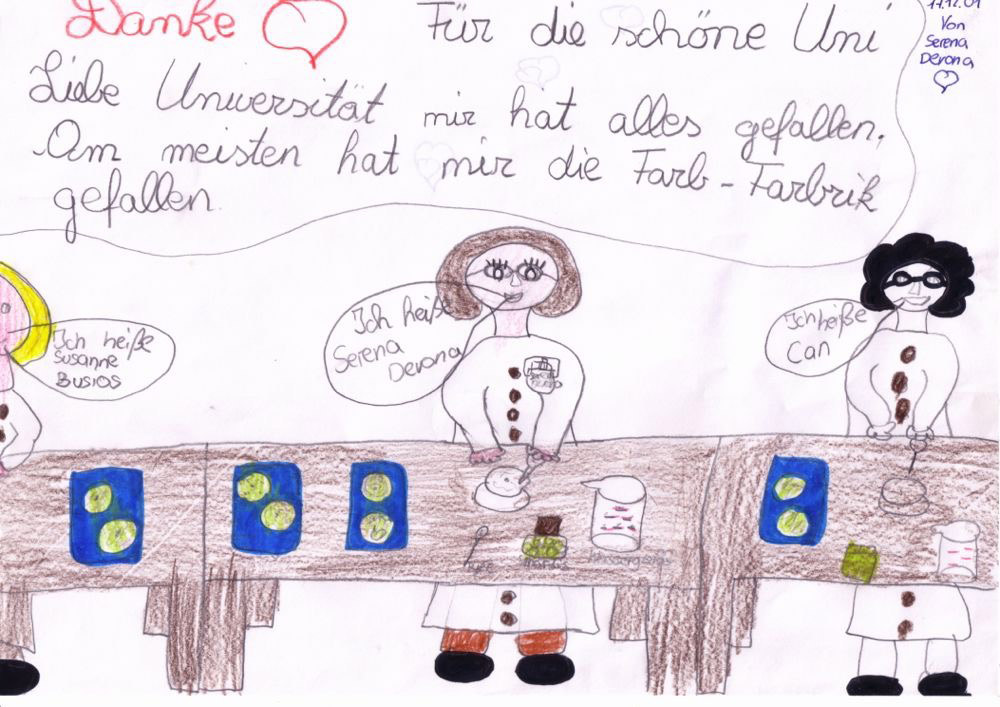 Danke Für die schöne Uni
Liebe Universität mir hat alles gefallen.
Am meisten hat mir die Farb-Farbrik
gefallen.
Von
Serena
Derona
Ich heiße
Susanne
Busios
Ich heiße
Serena
Derona
Ich heiße
Can